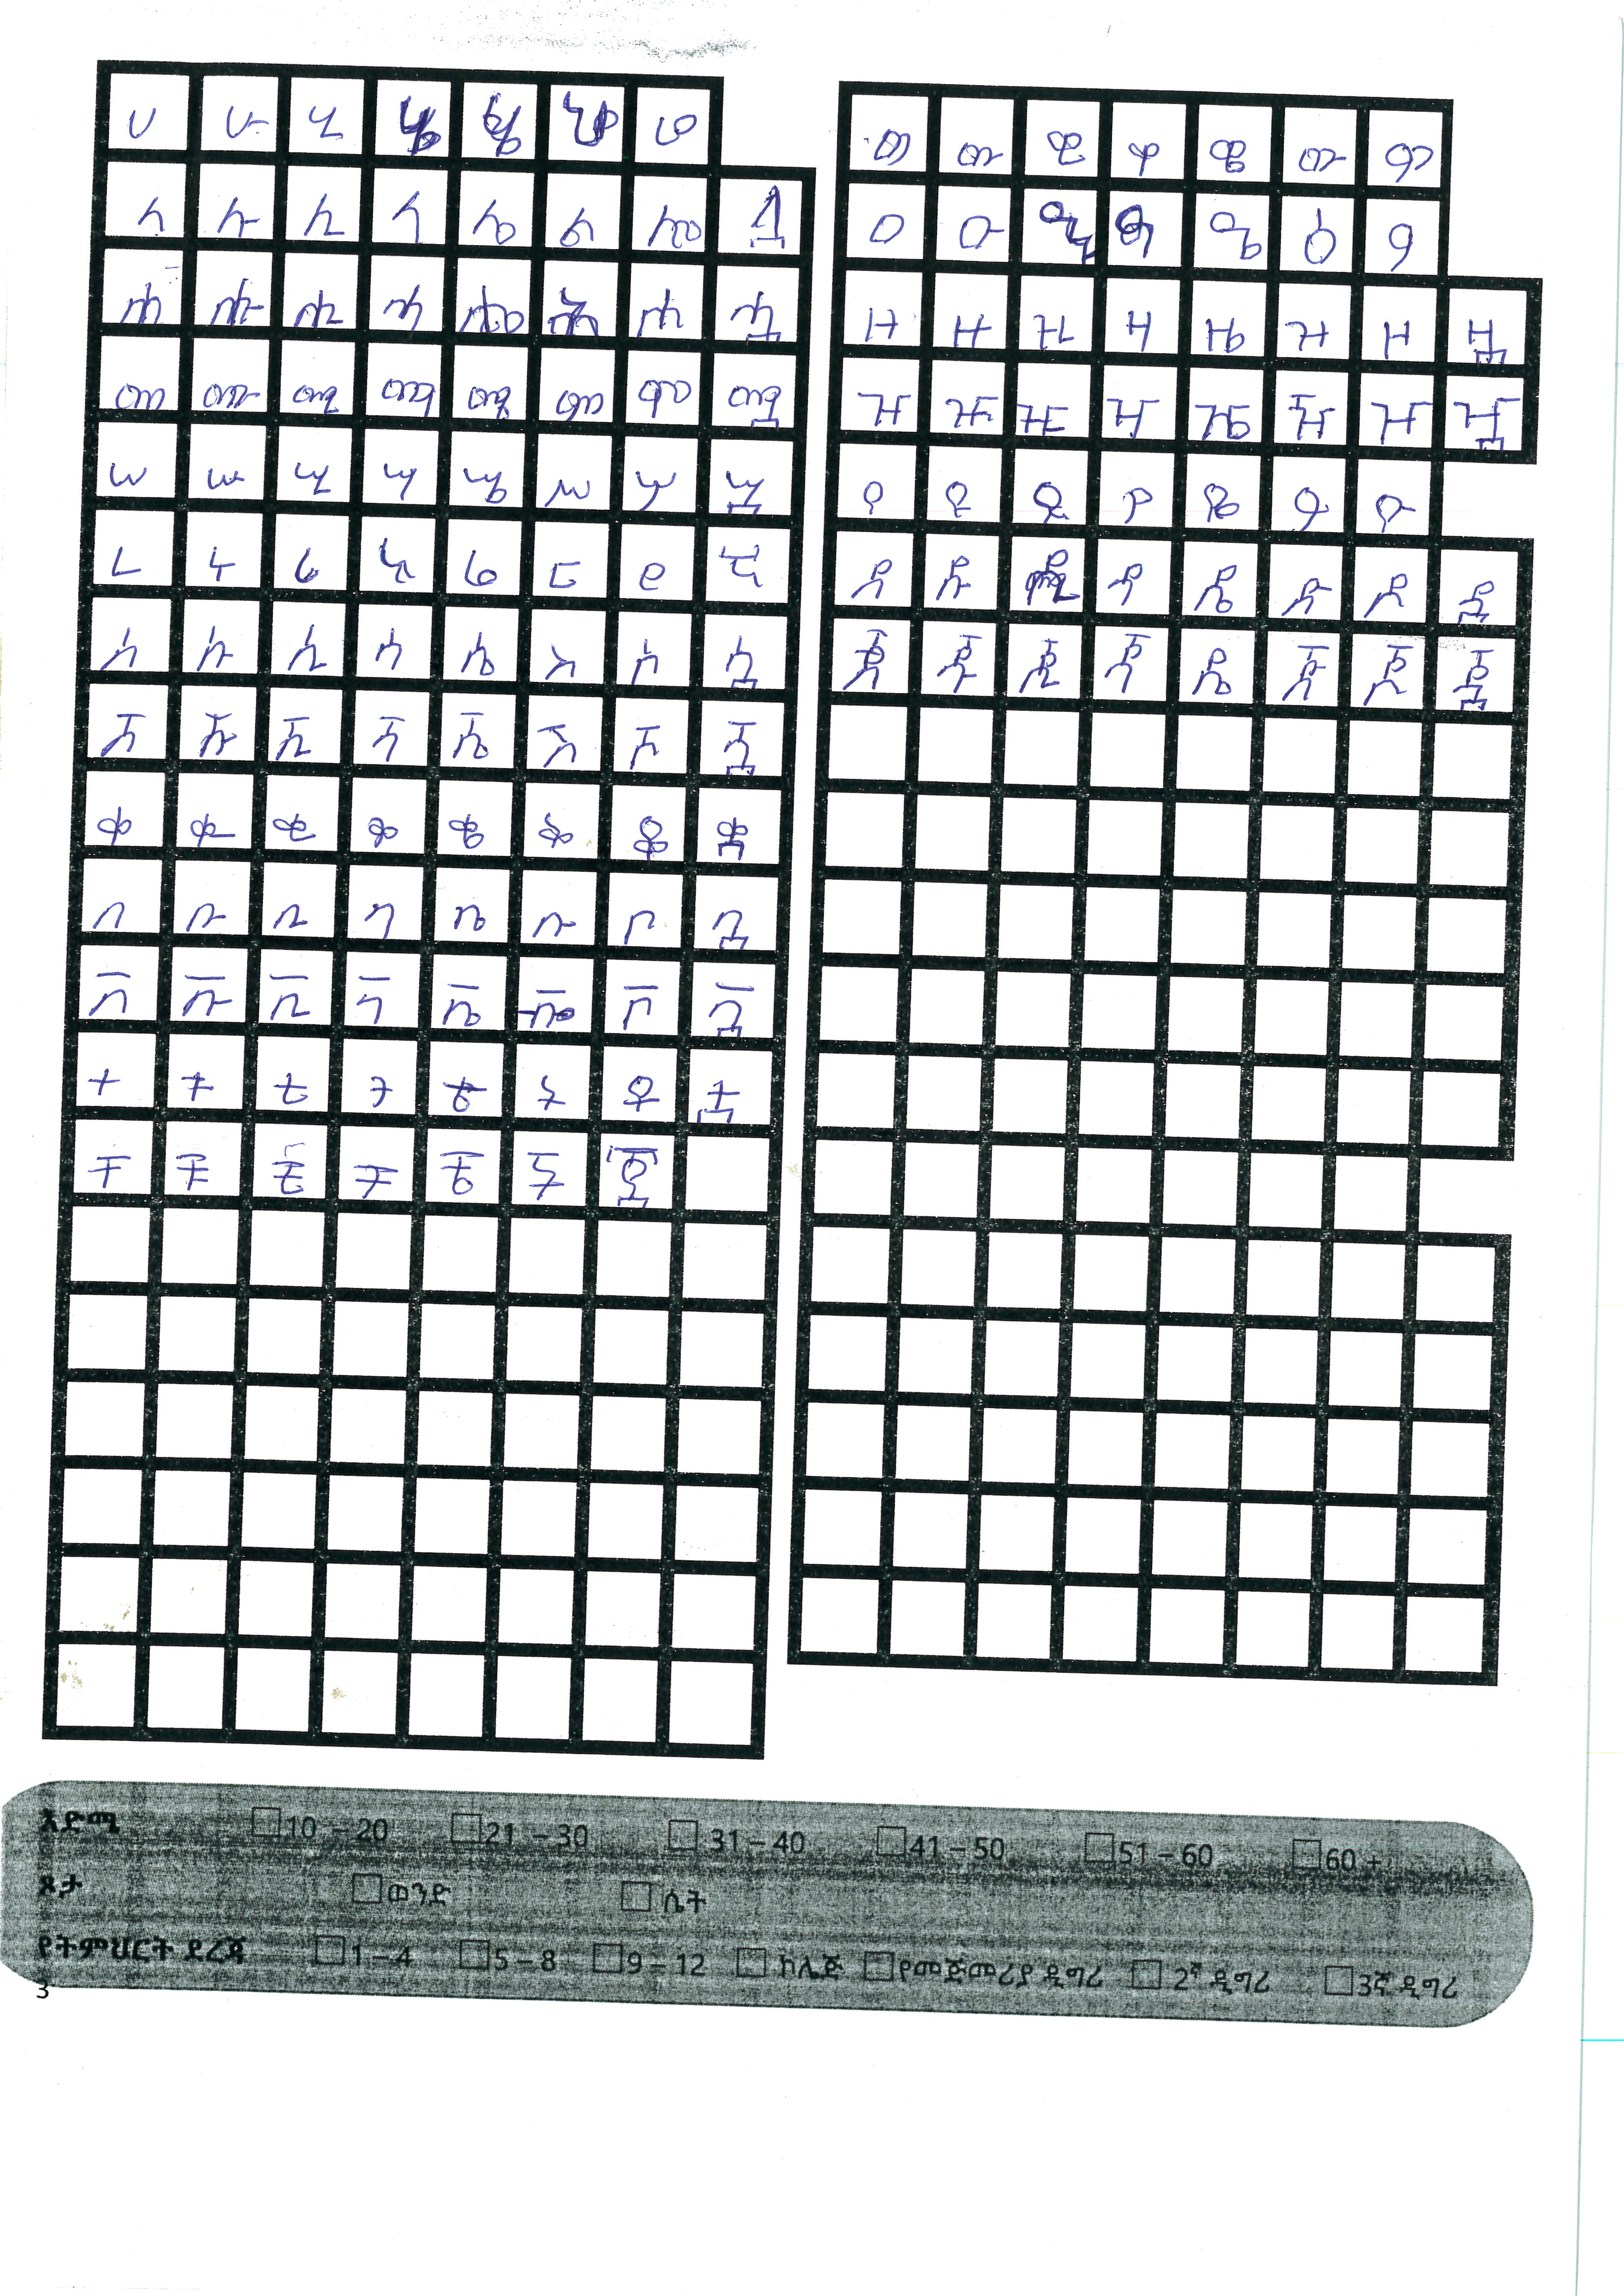 ሀ ሁ ሂ ሄ ሆ
ለ ሉ ሊ ላ ሌ ል ሎ ሏ
ሐ ሑ ሒ ሓ ሔ ሕ ሖ ሗ
መ ሙ ሚ ማ ሜ ም ሞ ሟ
ሠ ሡ ሢ ሣ ሤ ሥ ሦ ሧ
ረ ሩ ሪ ራ ሬ ር ሮ ሯ
ሰ ሱ ሲ ሳ ሴ ስ ሶ ሷ
ሸ ሹ ሺ ሻ ሼ ሽ ሾ ሿ
ቀ ቁ ቂ ቃ ቄ ቅ ቆ ቋ
በ ቡ ቢ ባ ቤ ቡ ቦ ቧ
ቨ ቩ ቪ ቫ ቬ ቮ ቯ
ተ ቱ ቲ ታ ቴ ት ቶ ቷ
ቸ ቹ ቺ ቻ ቼ ች
ወ ዉ ዊ ዋ ዌ ው ዎ
ዐ ዑ ዒ ዓ ዔ ዕ ዖ
ዘ ዙ ዚ ዛ ዜ ዝ ዞ ዟ
ዠ ዡ ዢ ዣ ዤ ዥ ዦ ዧ
የ ዩ ዪ ያ ዬ ይ ዮ
ደ ዱ ዲ ዳ ዴ ድ ዶ ዷ
ጀ ጁ ጂ ጃ ዴ ጅ ጆ ጇ
እድሜ 10 – 20 21 – 30 31 – 40 41 – 50 51 – 60 60 +
ጾታ ወንድ ሴት
የትምህርት ደረጃ 1 – 4 5 – 8 9 – 12 ኮሌጅ የመጀመሪያ ዲግሪ 2ኛ ዲግሪ 3ኛ ዲግሪ
3